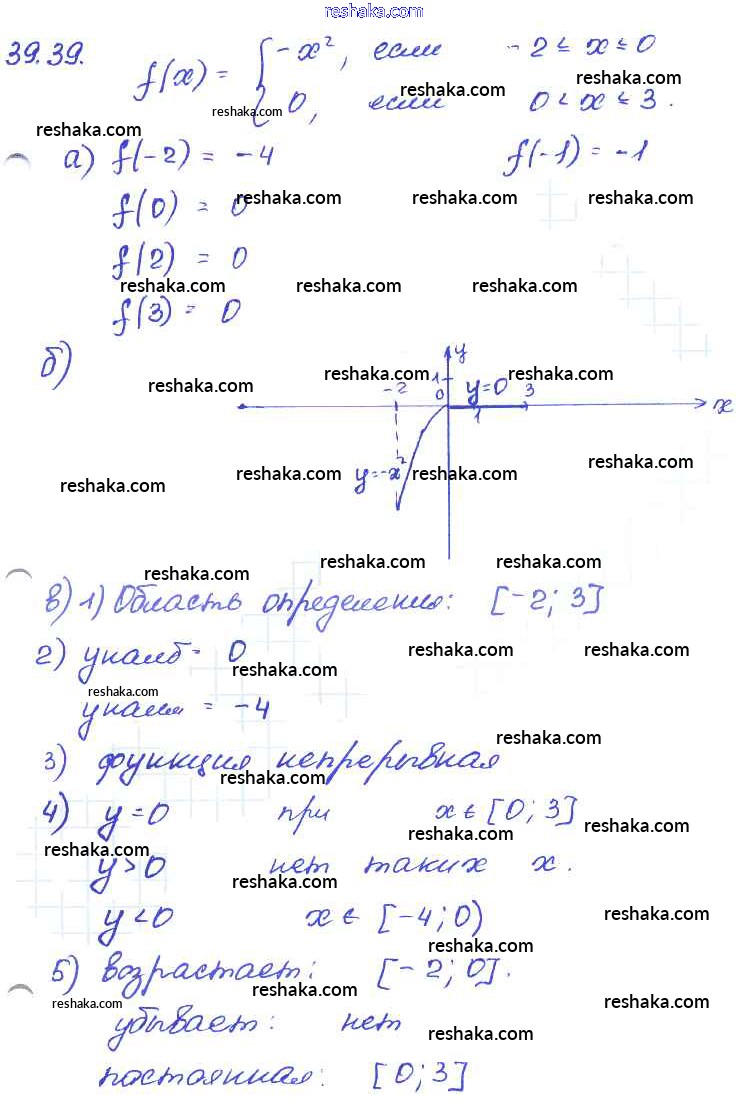 reshaka.com
39.39. f(x) = { -x², если -2 ≤ x ≤ 0
0, если 0 < x ≤ 3.
reshaka.com
reshaka.com
reshaka.com
reshaka.com
а) f(-2) = -4 f(-1) = -1
f(0) = 0
reshaka.com reshaka.com reshaka.com
f(2) = 0
reshaka.com reshaka.com reshaka.com
f(3) = 0
б)
y
reshaka.com reshaka.com reshaka.com
-2 1 0 y=0 3
1 x
y=-x²
reshaka.com reshaka.com reshaka.com reshaka.com
reshaka.com reshaka.com reshaka.com
в) 1) Область определения: [-2; 3]
2) yнаиб = 0
reshaka.com reshaka.com reshaka.com
reshaka.com
yнаим = -4
reshaka.com
3) функция непрерывная
reshaka.com
4) y=0 при x∈[0; 3]
reshaka.com reshaka.com
reshaka.com
y>0 нет таких x.
reshaka.com
y<0 x∈[-4; 0)
reshaka.com
reshaka.com
5) возрастает: [-2; 0].
reshaka.com reshaka.com reshaka.com
убывает: нет
reshaka.com
постоянная: [0; 3]